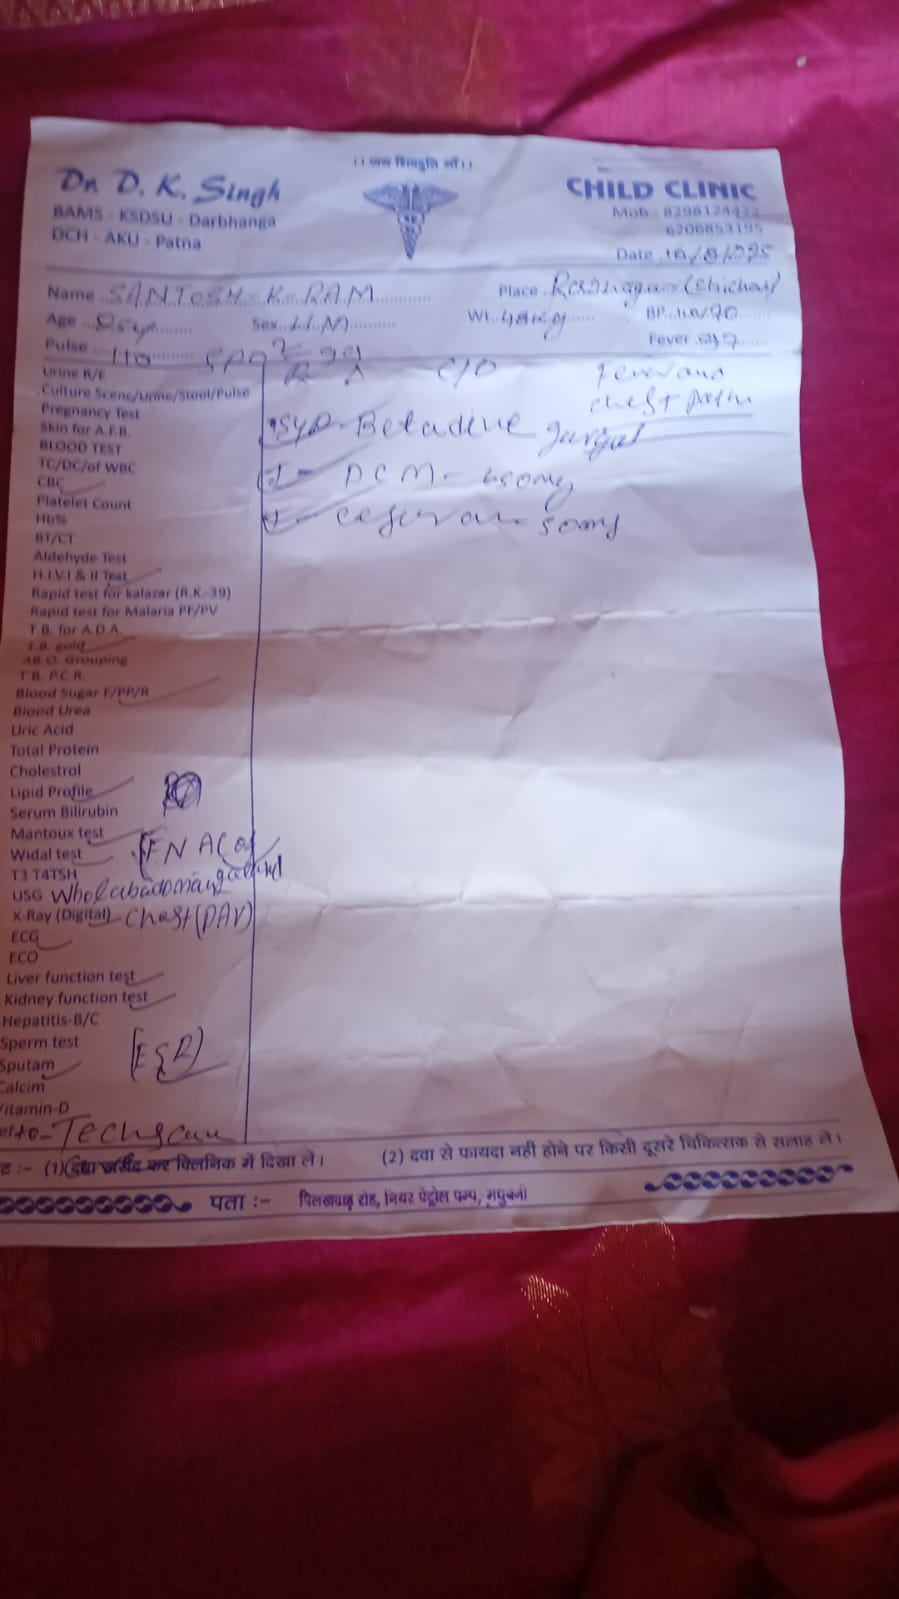 ।। जय शिवगुरु माँ ।।
Dr. D. K. Singh
BAMS - KSDSU - Darbhanga
DCH - AKU - Patna
CHILD CLINIC
Mob.: 8298124422
6206853195
Date
Name SANTOSH-K-RAM
Place
Age
Sex
Wt. 48Kg
BP. 110/70
Pulse 110
SPO2 99
Fever
C/O Fever and
chest pain
Syp- Betadine gargal
T- DCM - 650mg
T-
500mg
Urine R/E
Culture Scene/Urine/Stool/Pulse
Pregnancy Test
Skin for A.F.B.
BLOOD TEST
TC/DC/of WBC
CBC
Platelet Count
Hb%
BT/CT
Aldehyde Test
H.I.V.I & II Test
Rapid test for kalazar (R.K.-39)
Rapid test for Malaria PF/PV
T.B. for A.D.A.
T.B. gold
AB.O. Grouping
T.B. P.C.R.
Blood Sugar F/PP/R
Blood Urea
Uric Acid
Total Protein
Cholestrol
Lipid Profile
Serum Bilirubin
Mantoux test
Widal test
T3 T4TSH
USG
X-Ray (Digital) Chest (PAV)
ECG
ECO
Liver function test
Kidney function test
Hepatitis-B/C
Sperm test
(ESR)
Sputam
Calcim
Vitamin-D
(1) दवा खरीद कर क्लिनिक में दिखा लें।
(2) दवा से फायदा नही होने पर किसी दूसरे चिकित्सक से सलाह ले।
पता :- पिलखवाड़ रोड, नियर पेट्रोल पम्प, मधुबनी